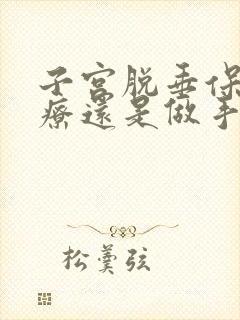 子宫脱垂保
療還是做手
松羹弦